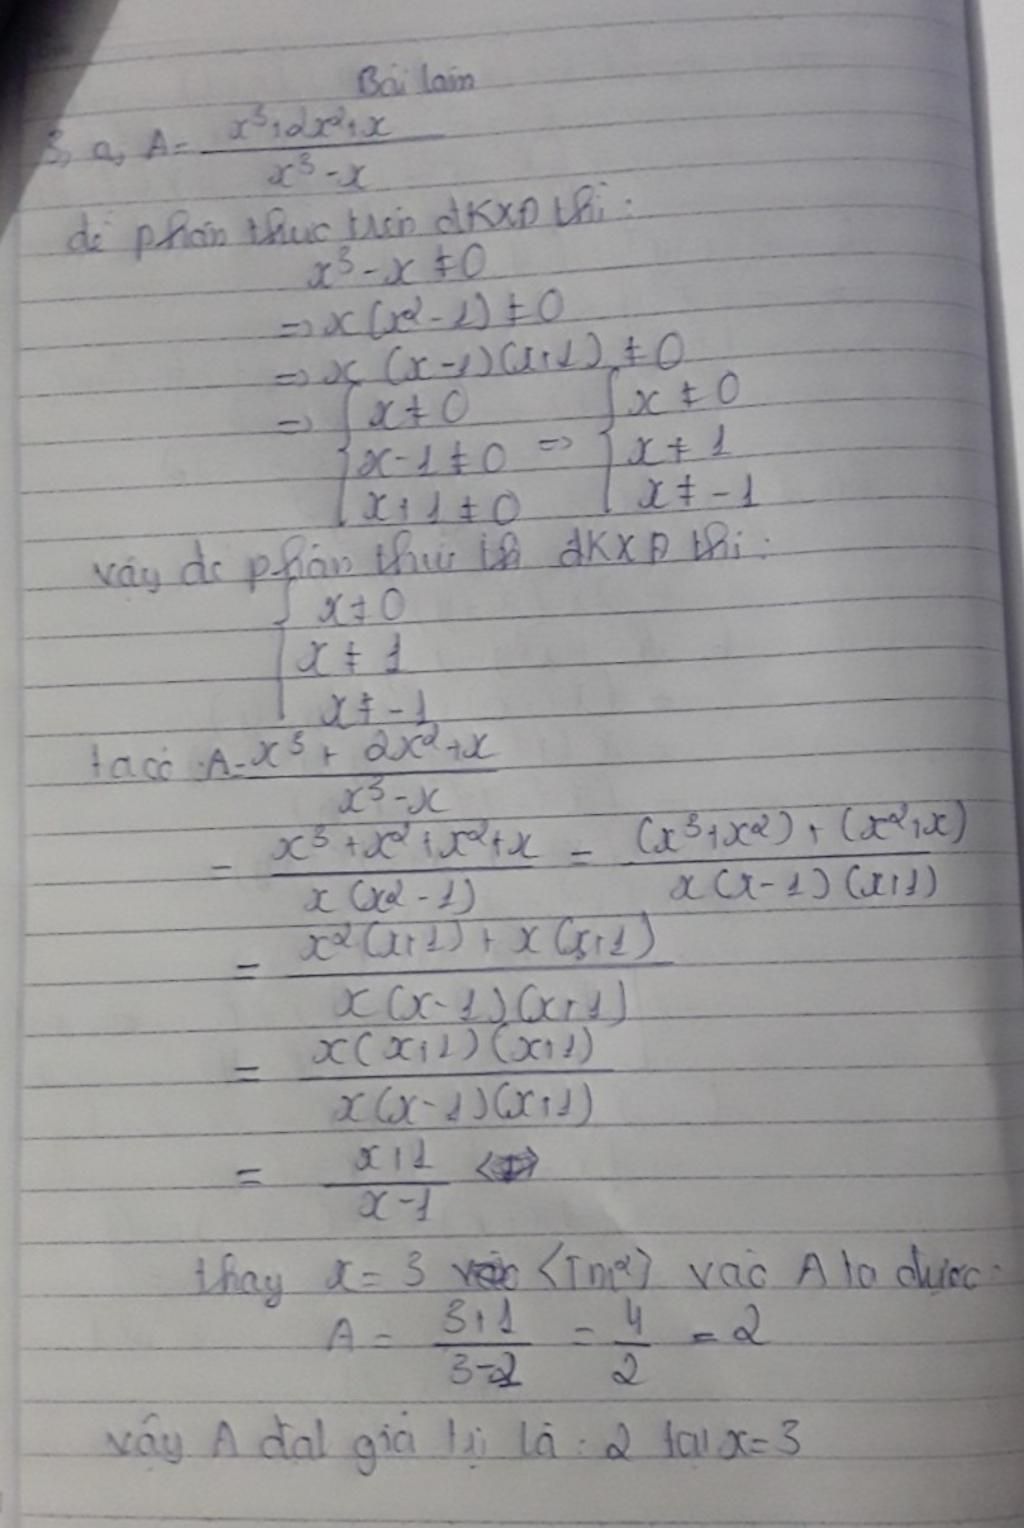 Bài làm
3, a, A = \frac{x^3+2x^2+x}{x^3-x}
để phân thức trên ĐKXĐ thì:
x^3 - x ≠ 0
=> x(x^2 - 1) ≠ 0
=> x (x - 1)(x+1) ≠ 0
=> { x ≠ 0 { x ≠ 0
x - 1 ≠ 0 => x ≠ 1
x + 1 ≠ 0 x ≠ -1
vậy để phân thức ĐKXĐ thì:
{ x ≠ 0
x ≠ 1
x ≠ -1
ta có: A = \frac{x^3 + 2x^2 + x}{x^3 - x}
= \frac{x^3 + x^2 + x^2 + x}{x(x2 - 1)} = \frac{(x^3 + x^2) + (x^2 + x)}{x(x - 1)(x+1)}
= \frac{x^2(x+1) + x(x+1)}{x(x - 1)(x+1)}
= \frac{x(x+1)(x+1)}{x(x - 1)(x+1)}
= \frac{x+1}{x-1}
thay x = 3 vào A ta được:
A = \frac{3+1}{3-1} = \frac{4}{2} = 2
vậy A đạt giá trị là: 2 tại x = 3